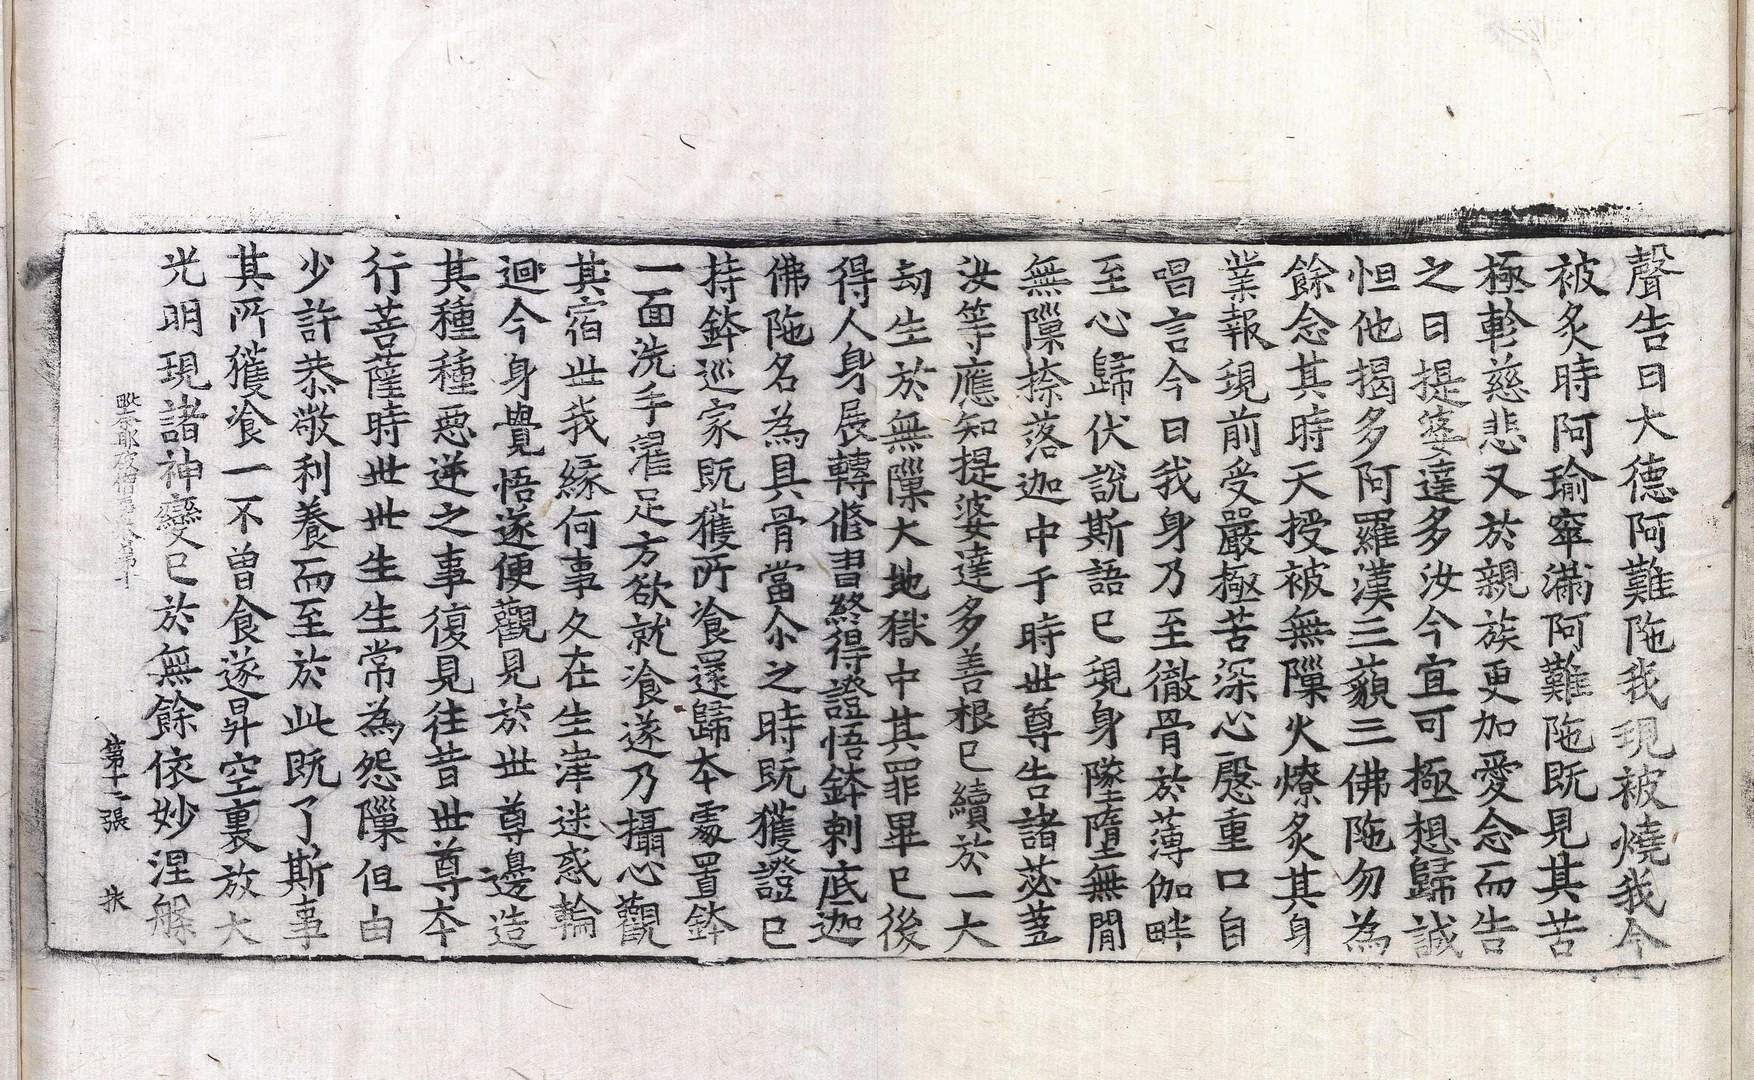 聲告曰大德阿難陁我現被燒我今
被炙時阿瑜窣滿阿難陁既見其苦
極軫慈悲又於親族更加愛念而告
之曰提婆達多汝今宜可極想歸誠
怛他揭多阿羅漢三藐三佛陁勿為
餘念其時天授被無隟火燎炙其身
業報現前受嚴極苦深心慇重口自
唱言今日我身乃至徹骨於薄伽畔
至心歸伏說斯語已現身墜墮無間
無隟捺落迦中于時世尊告諸苾蒭
汝等應知提婆達多善根已續於一大
劫生於無隟大地獄中其罪畢已後
得人身展轉修習終得證悟鉢剌底迦
佛陁名為具骨當尒之時既獲證已
持鉢巡家既獲所飡還歸本處置鉢
一面洗手濯足方欲就飡遂乃攝心觀
其宿世我緣何事久在生津迷惑輪
迴今身覺悟遂便觀見於世尊邊造
其種種惡逆之事復見往昔世尊本
行菩薩時世世生生常為怨隟但由
少許恭敬利養而至於此既了斯事
其所獲飡一不曾食遂昇空裏放大
光明現諸神變已於無餘依妙涅槃
第十二張